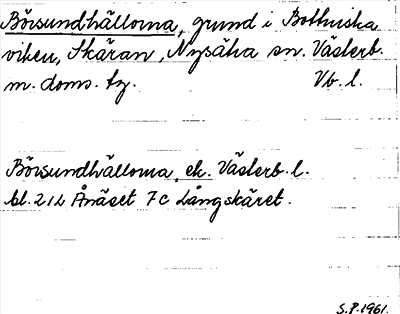 Börsundhällorna, grund i Bottniska
viken, Skäran, Nysätra sn. Västerb.
m. doms. tg. Vb. l.
Börsundhällorna, ek. Västerb. l.
bl. 21L Ånäset 7c Långskäret.
S.P.1961.